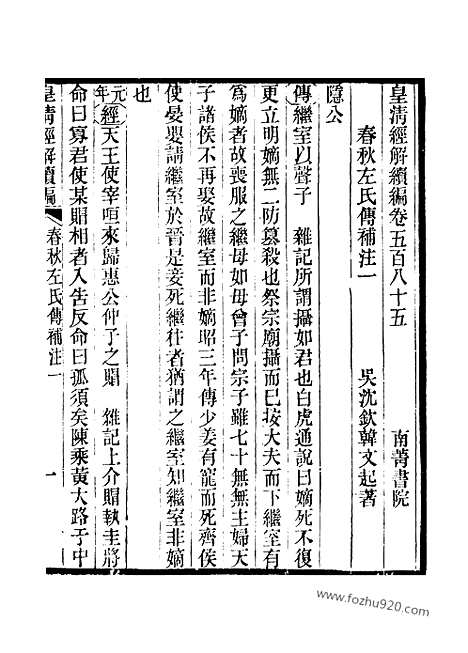 皇清經解續編卷五百八十五 南菁書院
春秋左氏傳補注一 吳沈欽韓文起著
隱公
傳繼室以聲子 雜記所謂攝如君也白虎通說曰嫡死不復
更立明嫡無二防篡殺也祭宗廟攝而已按大夫而下繼室有
為嫡者故喪服之繼母如母曾子問宗子雖七十無無主婦天
子諸侯不再娶故繼室而非嫡昭三年傳少姜有寵而死齊侯
使晏嬰請繼室於晉是妾死繼往者猶謂之繼室知繼室非嫡
也
元年經天王使宰咺來歸惠公仲子之賵 雜記上介賵執圭將
命曰寡君使某賵相者入告反命曰孤須矣陳乘黃大路于中
皇清經解續編 春秋左氏傳補注一 一
www.fozhu920.com